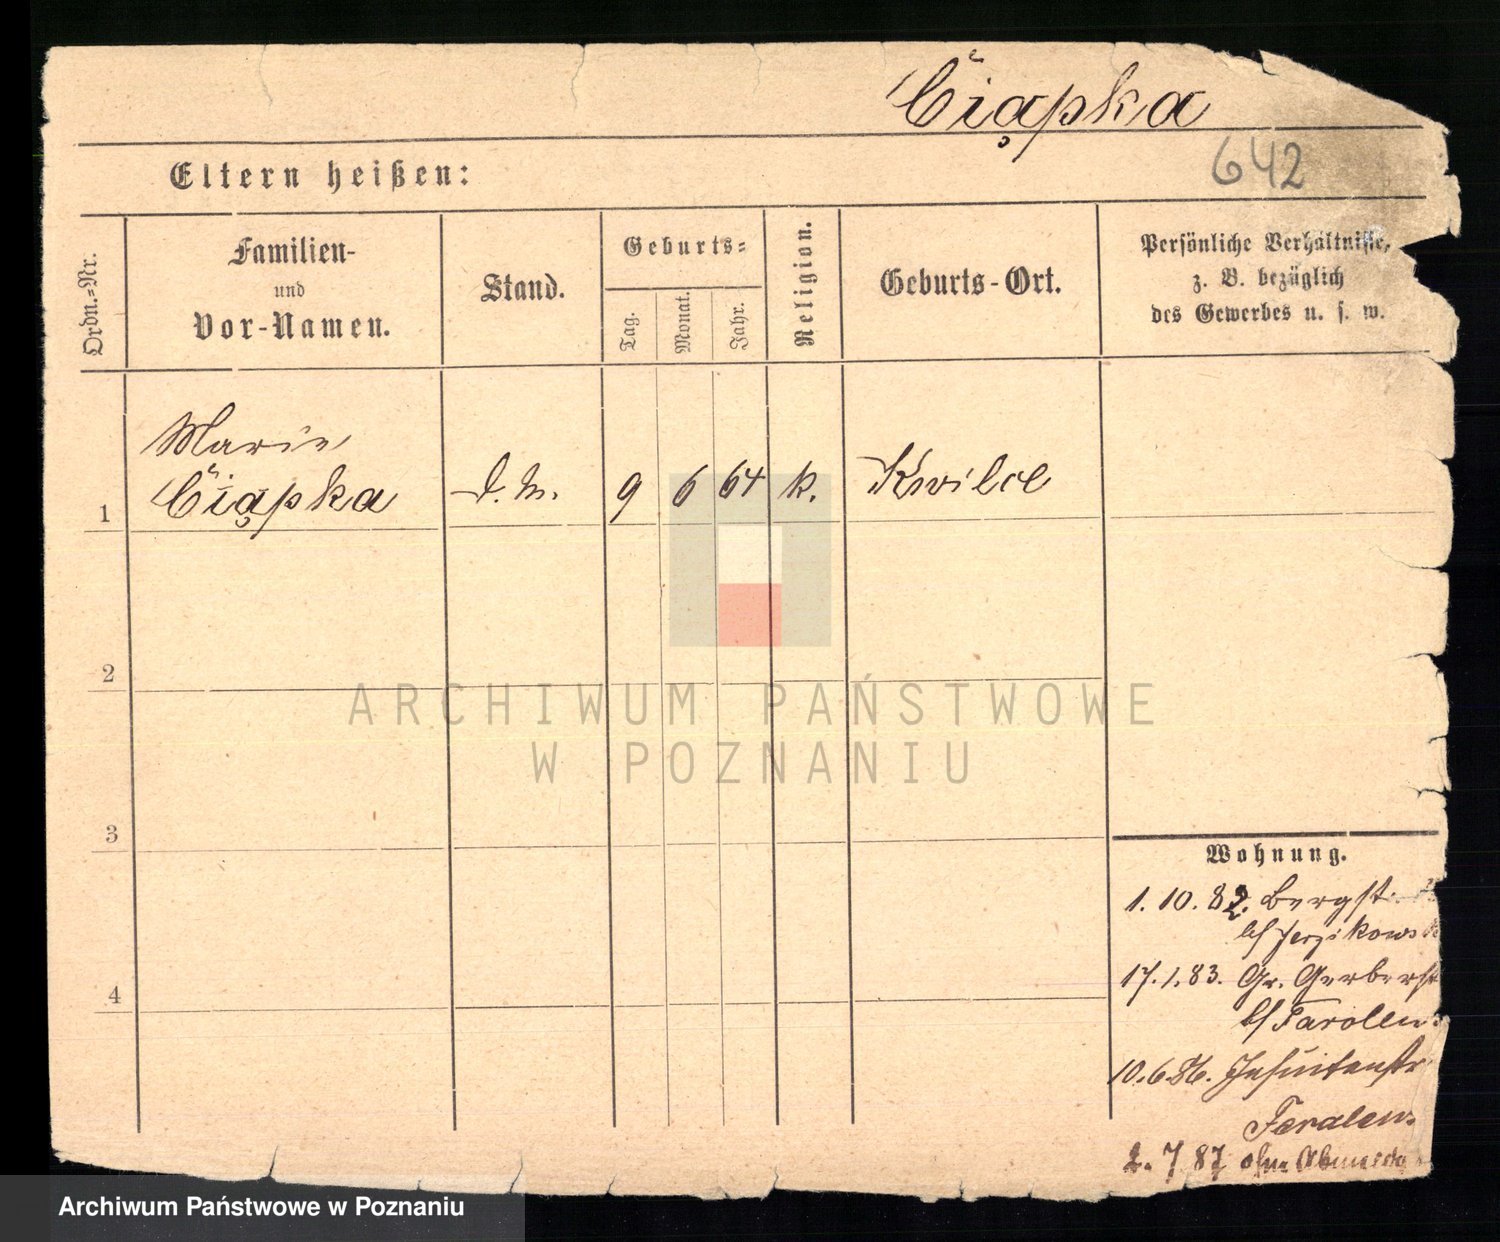 Ciąpka
642
Eltern heißen:
Ordn.-Nr.
Familien-
und
Vor-Namen.
Stand.
Geburts-
Tag.
Monat.
Jahr.
Religion.
Geburts-Ort.
Persönliche Verhältnisse,
z. B. bezüglich
des Gewerbes u. s. w.
Marie
Ciąpka
1
d. M.
9
6
64
k.
Kwilcz
2
3
4
Wohnung.
1. 10. 82. Bergst
b/ Jerzikowsk
17. 1. 83. Gr. Gerberst
b/
10. 6. 86. Jesuitenstr
2. 7 87 ohne
ARCHIWUM PAŃSTWOWE
W POZNANIU
Archiwum Państwowe w Poznaniu